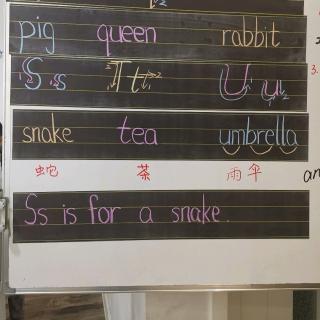 pig queen rabbit
S s T t U u
snake tea umbrella
蛇 茶 雨伞
Ss is for a snake.